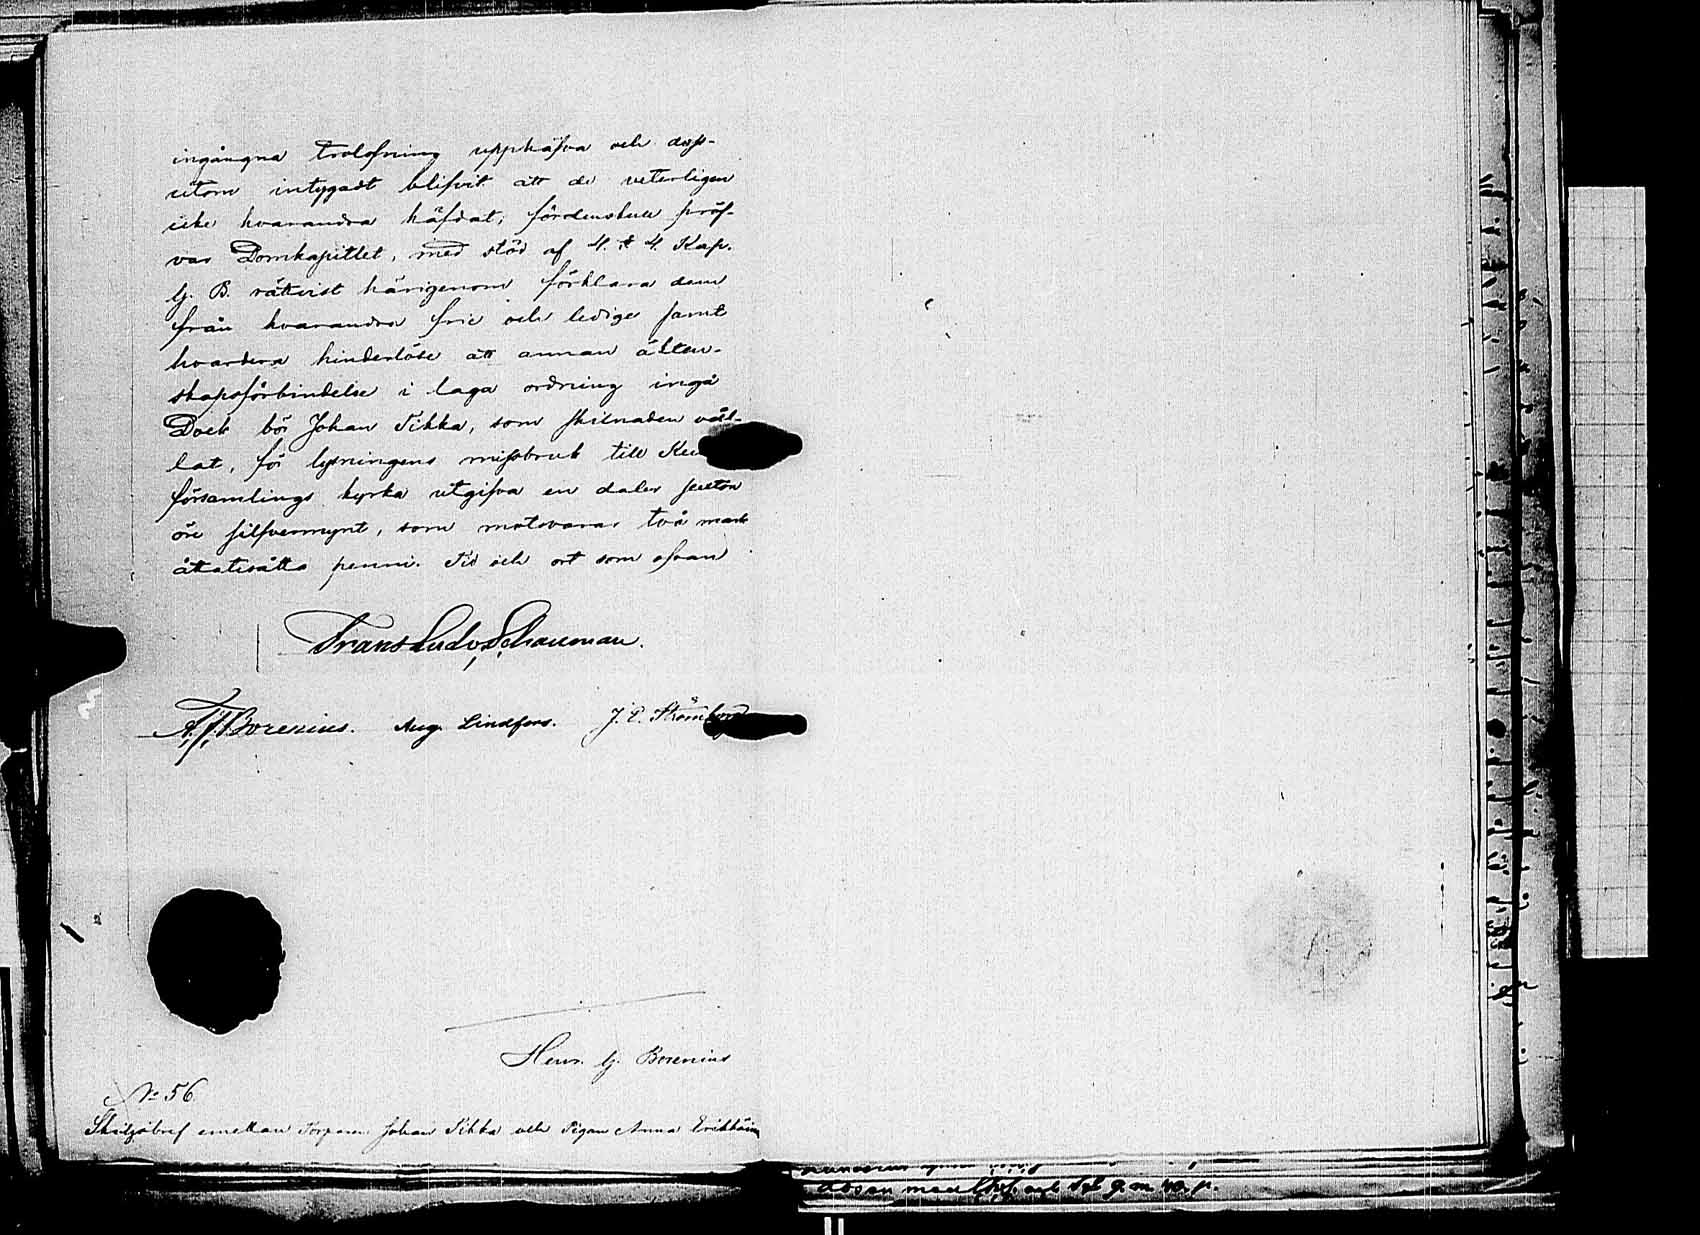 ingångna trolofning upphäfva och dess-
utom intygadt blifvit att de veterligen
icke hvarandra häfdat; fördenskull pröf-
var Domkapitlet, med stöd af 4. § 4. Kap.
G. B. rättvist härigenom förklara dem
från hvarandra frie och ledige samt
hvardera hinderlöse att annan äkten-
skapsförbindelse i laga ordning ingå
Dock bör Johan Tikka, som skilnaden vål-
lat, för lysningens missbruk till
församlings kyrka utgifva en daler sexton
öre silfvermynt, som motsvarar två mark
åttatioåtta penni. Tid och ort som ofvan
Frans Ludv. Schauman.
Borenius. Aug. Lindfors. J. E. Strömborg
Henr. G. Borenius
No 56.
Skiljobref emellan Torparen Johan Tikka och Pigan Anna